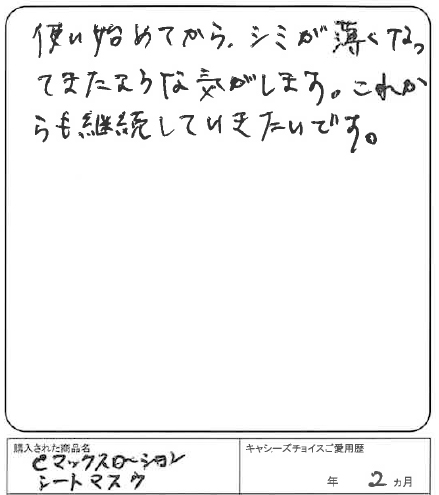 使い始めてから、シミが薄くなっ
てきたような気がします。これか
らも継続していきたいです。
購入された商品名
eマックスローション
シートマスク
キャシーズチョイスご愛用歴
年 2 ヵ月